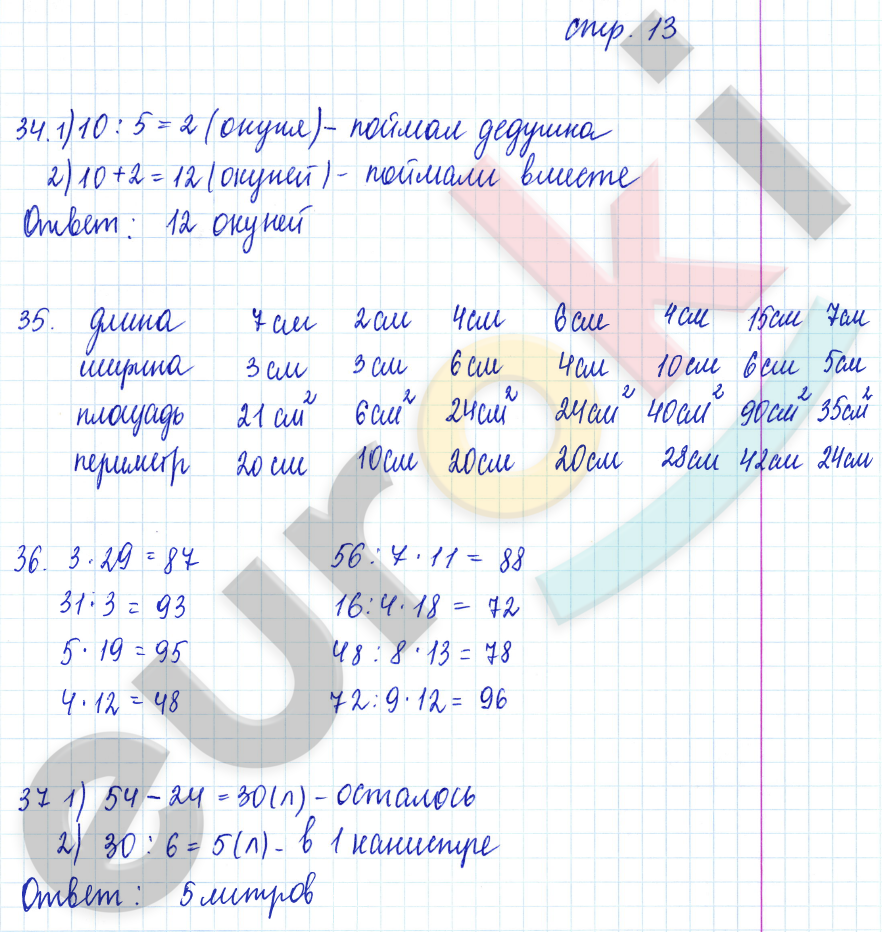 стр. 13
34. 1) 10 : 5 = 2 (окуня) - поймал дедушка
2) 10 + 2 = 12 (окуней) - поймали вместе
Ответ: 12 окуней
35. длина 7 см 2 см 4 см 6 см 4 см 15 см 7 см
ширина 3 см 3 см 6 см 4 см 10 см 6 см 5 см
площадь 21 см² 6 см² 24 см² 24 см² 40 см² 90 см² 35 см²
периметр 20 см 10 см 20 см 20 см 28 см 42 см 24 см
36. 3 · 29 = 87 56 : 7 · 11 = 88
31 · 3 = 93 16 : 4 · 18 = 72
5 · 19 = 95 48 : 8 · 13 = 78
4 · 12 = 48 72 : 9 · 12 = 96
37 1) 54 - 24 = 30 (л) - осталось
2) 30 : 6 = 5 (л) - в 1 канистре
Ответ: 5 литров
euroki